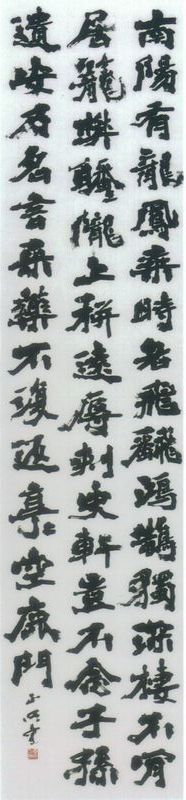 南陽有龍鳳乘時各飛翻鴻鵠獨深棲不肯
居籠樊隴上耕遠辱刺史軒豈不念子孫
遺安乃名言采藥不復返亭々空鹿門
書